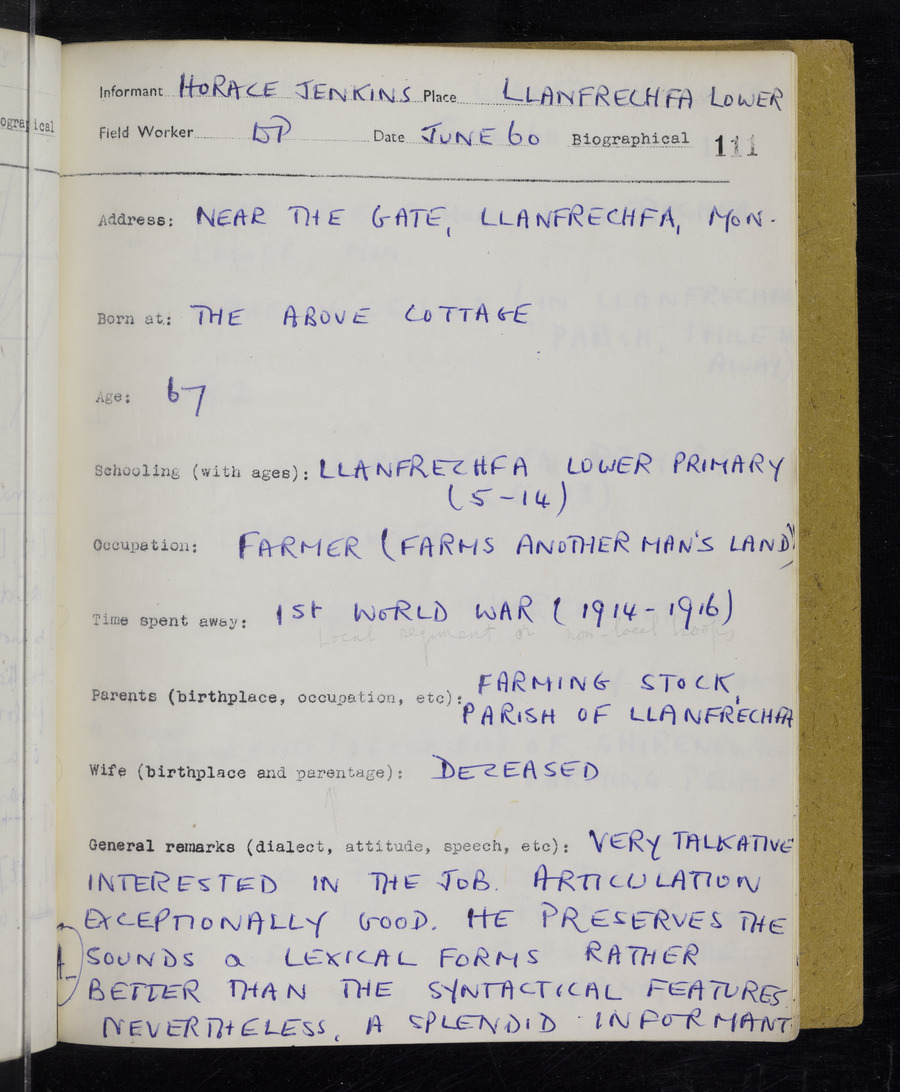 Informant HORACE JENKINS Place LLANFRECHFA LOWER
ographical
Field Worker DP Date JUNE 60 Biographical 111
Address: NEAR THE GATE, LLANFRECHFA, MON.
Born at: THE ABOVE COTTAGE
Age: 67
Schooling (with ages): LLANFRECHFA LOWER PRIMARY
(5-14)
Occupation: FARMER (FARMS ANOTHER MAN'S LAND)
Time spent away: 1st WORLD WAR (1914-1916)
Local regiment or non-local troops
Parents (birthplace, occupation, etc): FARMING STOCK,
PARISH OF LLANFRECHFA
Wife (birthplace and parentage): DECEASED
General remarks (dialect, attitude, speech, etc): VERY TALKATIVE
INTERESTED IN THE JOB. ARTICULATION
EXCEPTIONALLY GOOD. HE PRESERVES THE
SOUNDS & LEXICAL FORMS RATHER
BETTER THAN THE SYNTACTICAL FEATURES.
NEVERTHELESS, A SPLENDID INFORMANT